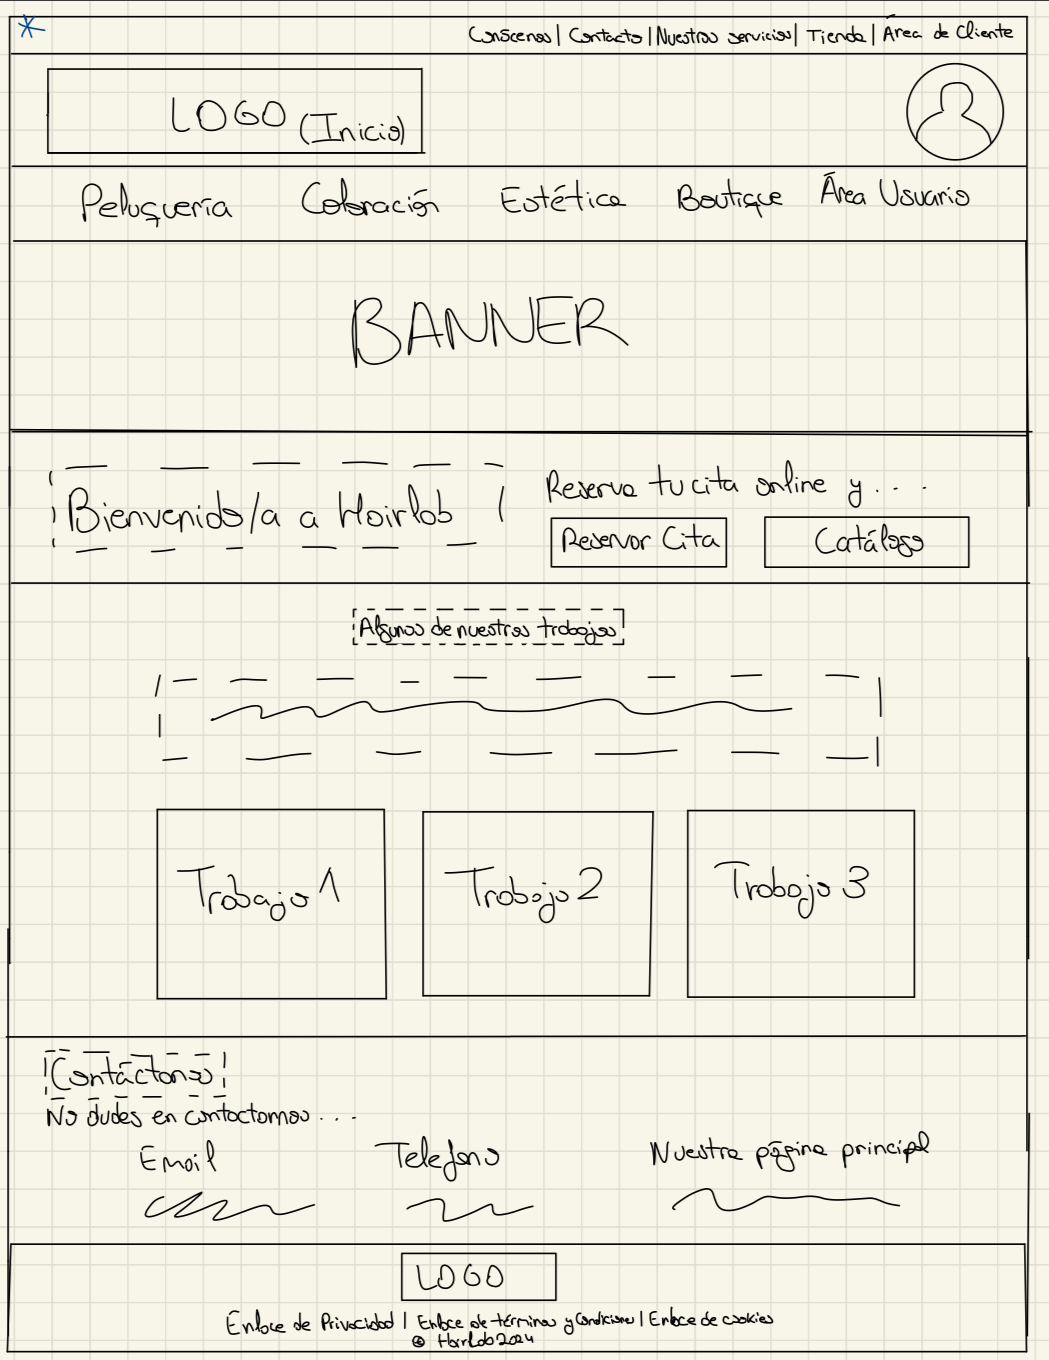 Conócenos | Contacto | Nuestros servicios | Tienda | Área de Cliente
LOGO (Inicio)
Peluquería Coloración Estética Boutique Área Usuario
BANNER
Bienvenido/a a Hairlab
Reserva tu cita online y ....
Reservar Cita Catálogo
Algunos de nuestros trabajos
Trabajo 1 Trabajo 2 Trabajo 3
Contáctanos
No dudes en contactarnos ...
Email Telefono Nuestra página principal
LOGO
Enlace de Privacidad | Enlace de términos y Condiciones | Enlace de cookies
© Hairlab 2024